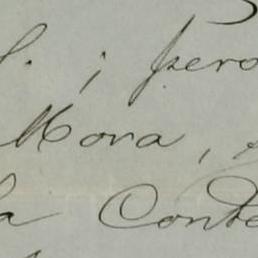 S. ; pero
Mora,
la Conte